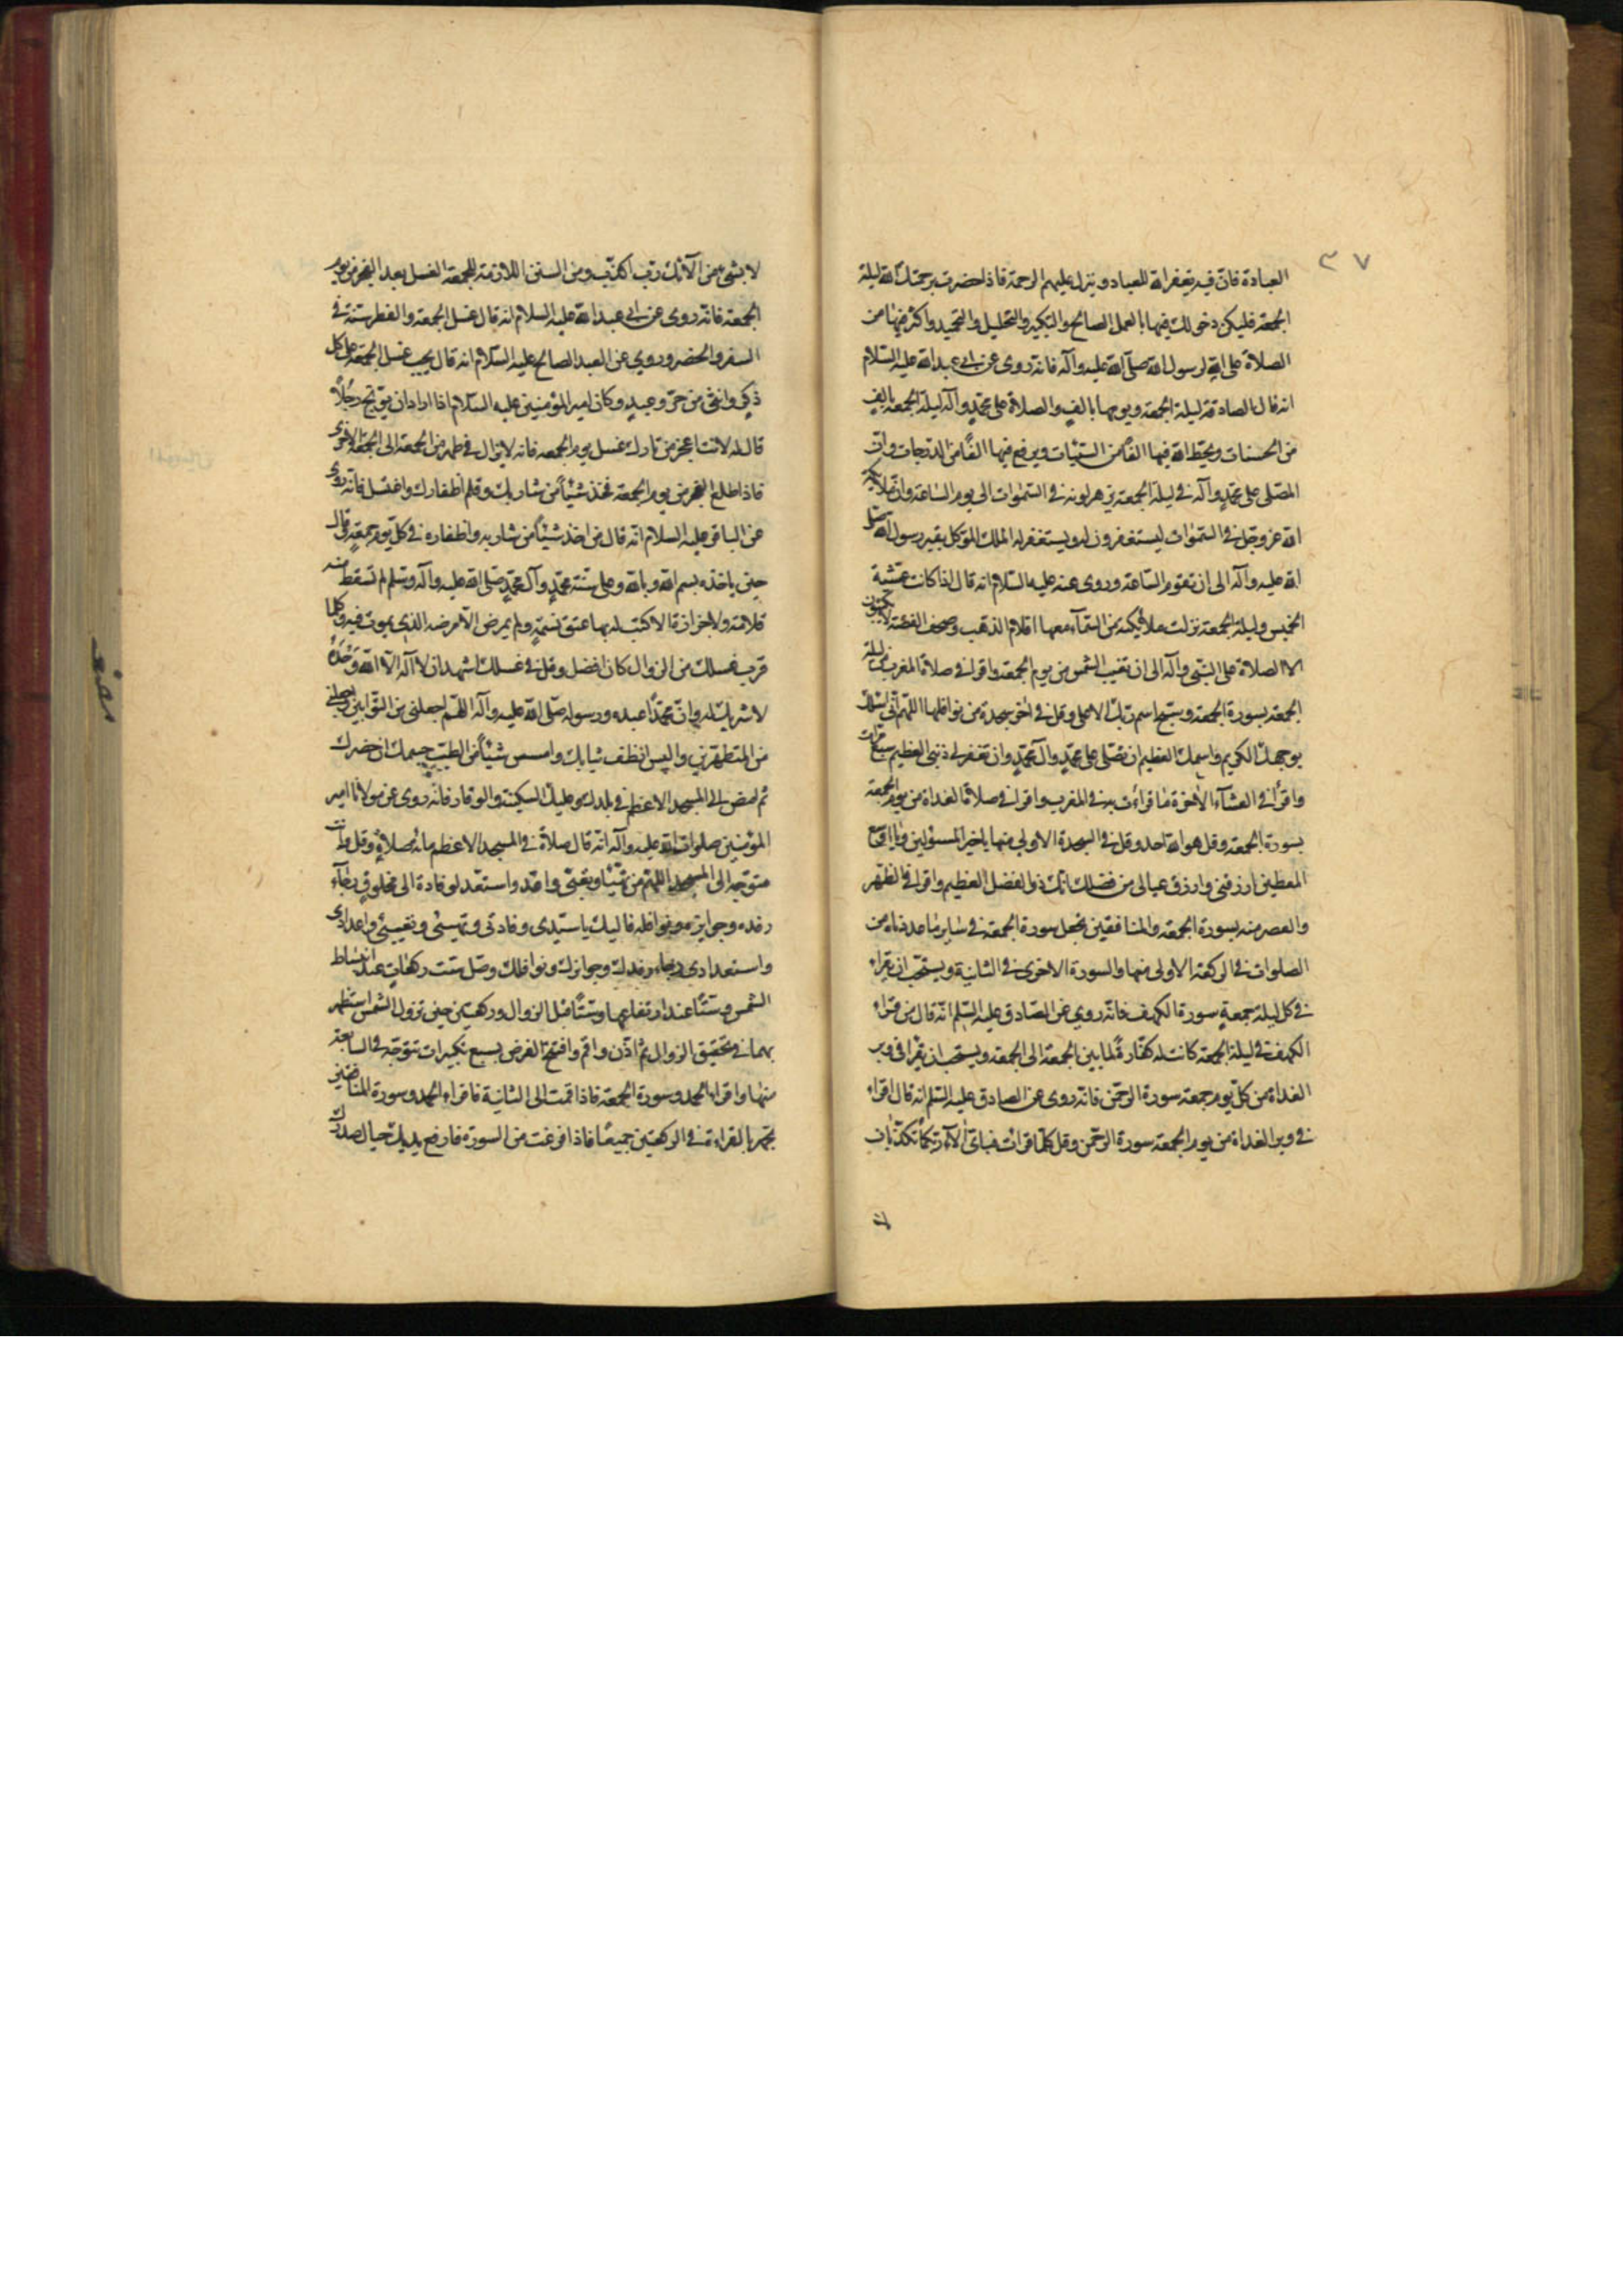 ٣٧
العبادة فانّ فيه يغفر الله للعباد وينزل عليهم الرحمة فاذا حضرت يرحمك الله ليلة
الجمعة فليكن دخولك فيها بالعمل الصالح والتكبير والتحليل والتمجيد واكثر فيها من
الصلاة على الله لرسول الله صلّى الله عليه وآله فانه روى عن ابي عبد الله عليه السّلام
انه قال الصادقة ليلة الجمعة ويومها بالفٍ والصلاة على محمّدٍ وآله ليلة الجمعة بالفٍ
من الحسنات ويحطّ الله فيها الفًا من السيّئات ويرفع فيها الفًا من الدرجات وانّ
المصلّى على محمّدٍ وآله في ليلة الجمعة يزهر لونه في السّموات الى يوم السّاعة وانّ ملائكة
الله عزّ وجلّ في السّموات ليستغفرون له ويستغفر له الملك الموكل بقبر رسول الله صلّى
الله عليه وآله الى ان تقوم السّاعة وروى عنه عليه السّلام انه قال اذا كانت عشيّة
الخميس وليلة الجمعة نزلت ملائكة من السّماء معها اقلام الذهب وصحف الفضّة لا يكتبون
الا الصلاة على النبّي وآله الى ان تغيب الشمس من يوم الجمعة واقرا في صلاة المغرب من ليلة
الجمعة بسورة الجمعة وسبّح اسم ربّك الاعلى وقل في اخر سجدة من نوافلها اللّهمّ انّي اسئلك
بوجهك الكريم واسمك العظيم ان تصلّى على محمّدٍ وآل محمّدٍ وان تغفر لي ذنبي العظيم سبع مرّات
واقرأ في العشآء الآخرة ما قرأت به في المغرب واقرا في صلاة الغداة من يوم الجمعة
بسورة الجمعة وقل هو الله احد وقل في السجدة الاولى منها يا خير المسئولين ويا اوسع
المعطين ارزقني وارزق عيالى من فضلك انك ذو الفضل العظيم واقرا في الظهر
والعصر منه بسورة الجمعة والمنافقين تجعل سورة الجمعة في ساير ما عددناه من
الصلوات في الركعة الاولى منها والسورة الاخرى في الثانية ويستحّب ان يقراء
في كل ليلة جمعةٍ سورة الكهف فانّه روي عن الصّادق عليه السّلم انّه قال من قراء
الكهف في ليلة الجمعة كانت له كفّارةً لما بين الجمعة الى الجمعة ويستحب ان يقرا في دبر
الغداة من كلّ يوم جمعة سورة الرحمن فانّه روى عن الصادق عليه السّلم انه قال اقراء
في دبر الغداة من يوم الجمعة سورة الرحمن وقل كلّما قرات فباىّ آلآء ربّكما تكذّبان
لا بشئ من آلآئك ربّ اكذّب ومن السنن اللازمة للجمعة الغسل بعد الفجر من يوم
الجمعة فانّه روى عن ابي عبد الله عليه السلام انه قال غسل الجمعة والفطر سنة في
السفر والحضر وروي عن العبد الصالح عليه السّلام انه قال يجب غسل الجمعة على كل
ذكرٍ وانثى من حرٍّ وعبدٍ وكان امير المؤمنين عليه السّلام اذا اراد ان يوبّخ رجُلاً
قال له لانت اعجز من تارك غسل يوم الجمعة فانه لا يزال في طهرٍ من الجمعة الى الجمعة الاخرى
فاذا طلع الفجر من يوم الجمعة فخذ شيئاً من شاربك وقلم اظفارك واغتسل فانّه روى
عن الباقر عليه السلام انّه قال من اخذ شيئاً من شاربه واظفاره في كل يوم جمعةٍ وقال
حين ياخذه بسم الله وبالله وعلى سنّة محمّدٍ وآل محمّدٍ صلّى الله عليه وآله وسلم لم تسقط منه
قلامة ولا جزازة الا كتب له بها عتق نسمةٍ ولم يمرض الّا مرضه الذي يموت فيه وكلما
قرب غسلك من الزوال كان افضل وقل في غسلك اشهد ان لا آله الّا الله وَحْدَهُ
لا شريك له وانّ محمّدًا عبده ورسوله صلّى الله عليه وآله اللّهم اجعلني من التّوابين واجعلني
من المتطهّرين والبس انظف ثيابك وامسس شيئاً من الطيب جسمك ان حضرك
ثم امض الى المسجد الاعظم في بلدك وعليك السكينة والوقار فانّه روى عن مولانا امير
المؤمنين صلوات الله عليه وآله انّه قال صلاةٌ في المسجد الاعظم مائة صلاةٍ وقل وانت
متوجّه الى المسجد اللّهمّ من تهيّأ وتعبّى واعدّ واستعدّ لوفادة الى مخلوقٍ رجآء
رفده وجوايزه ونوافله فاليك يا سيّدى وفادتى وتهيئتى وتعبيتي واعدادى
واستعدادى رجاء رفدك وجوايزك ونوافلك وصلّ ستّ ركعاتٍ عند انبساط
الشمس وستّاً عند ارتفاعها وستّاً قبل الزوال وركعتين حين تزول الشمس استظهر
بهما في تحقيق الزوال ثمّ اذّن واقم وافتح الفرض بسبع تكبيرات تتوجّه في السابعة
منها واقراء الحمد وسورة الجمعة فاذا قمت الى الثانية فاقراء الحمد وسورة المنافقين
تجهر بالقراءة في الركعتين جميعًا فاذا فرغت من السورة فارفع يديك حيال صدرك